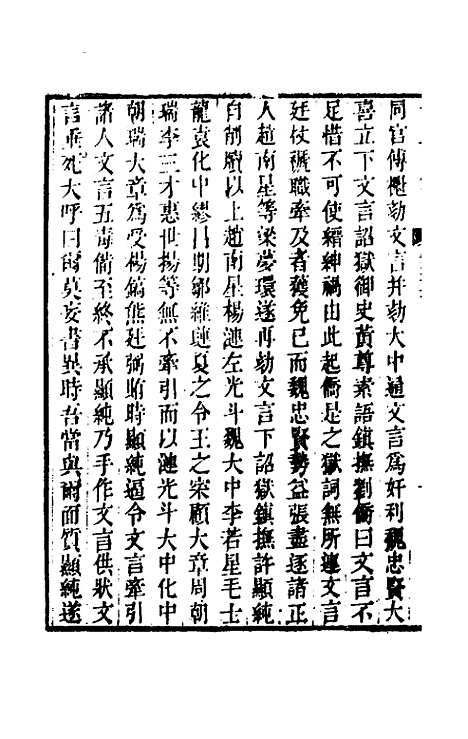 同官傅櫆劾文言并劾大中通文言為奸利魏忠賢大
喜立下文言詔獄御史黃尊素語鎮撫劉僑曰文言不
足惜不可使縉紳禍由此起僑是之獄詞無所連文言
廷杖褫職牽及者獲免已而魏忠賢勢益張盡逐諸正
人趙南星等梁夢環遂再劾文言下詔獄鎮撫許顯純
自削牘以上趙南星楊漣左光斗魏大中李若星毛士
龍袁化中繆昌期鄒維璉夏之令王之宷顧大章周朝
瑞李三才惠世揚等無不牽引而以漣光斗大中化中
朝瑞大章為受楊鎬熊廷弼賄時顯純逼令文言牽引
諸人文言五毒備至終不承顯純乃手作文言供狀文
言垂死大呼曰爾莫妄書異時吾當與爾面質顯純遂